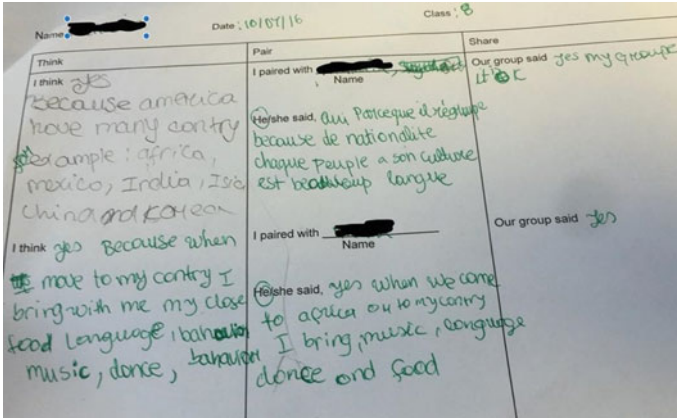 Name
Date: 10/07/16
Class: 8
Think
I think yes
Because america
have many contry
example: africa,
mexico, India, Isia
china and Korean
I think yes Because when
move to my contry I
bring with me my close
food Language, bahavior
music, donce, bahavior
Pair
I paired with
Name
He/she said, oui Parceque il régroupe
because de nationalite
chaque peuple a son culture
est beaucoup langue
I paired with
Name
He/she said, yes when we come
to africa ou to my contry
I bring, music, language
donce and food
Share
Our group said yes my groupe
it's OK
Our group said yes